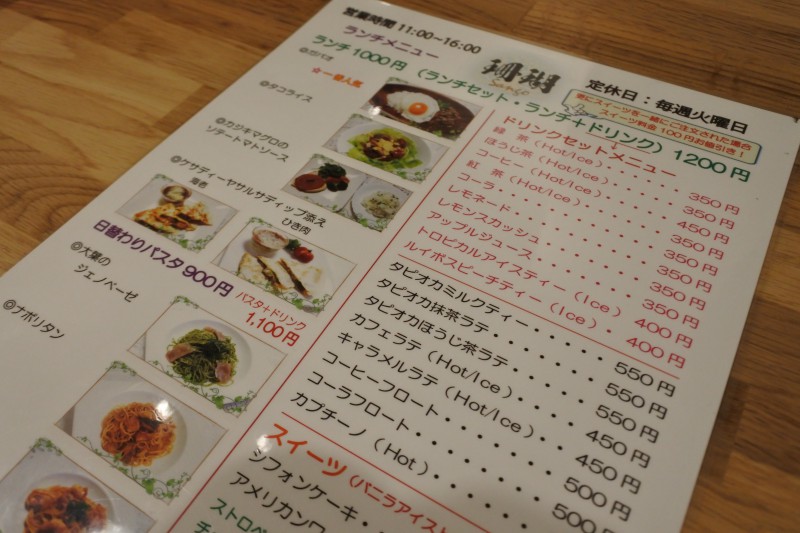 営業時間 11:00~16:00
珊瑚
Sango
定休日：毎週火曜日
ランチメニュー
ランチ1000円 （ランチセット・ランチ＋ドリンク）1200円
更にスイーツを一緒にご注文された場合
スイーツ料金100円お値引き！
☆一番人気
◎タコライス
◎カジキマグロの
ソテートマトソース
◎ケサディーヤサルサディップ添え
海老
ひき肉
日替わりパスタ900円
パスタ＋ドリンク
1,100円
◎大葉の
ジェノベーゼ
◎ナポリタン
ドリンクセットメニュー
緑 茶（Hot/Ice）
ほうじ茶（Hot/Ice）・・・・・350円
コーヒー（Hot/Ice）・・・・・350円
紅 茶（Hot/Ice）・・・・・450円
コーラ・・・・・350円
レモネード・・・・・350円
レモンスカッシュ・・・・・350円
アップルジュース・・・・・350円
トロピカルアイスティー（Ice）・400円
ルイボスピーチティー（Ice）・400円
タピオカミルクティー・・・・・550円
タピオカ抹茶ラテ・・・・・550円
タピオカほうじ茶ラテ・・・・・550円
カフェラテ（Hot/Ice）・・・・450円
キャラメルラテ（Hot/Ice）・・450円
コーヒーフロート・・・・・500円
コーラフロート・・・・・500円
カプチーノ（Hot）・・・・・
スイーツ（バニラアイス
シフォンケーキ・
アメリカンワ
ストロベ